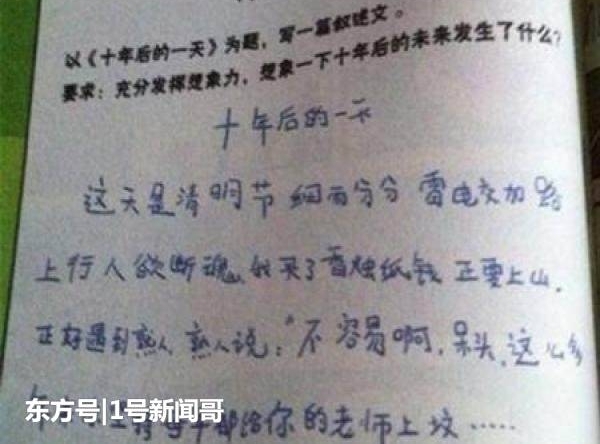 以《十年后的一天》为题，写一篇叙述文。
要求：充分发挥想象力，想象一下十年后的未来发生了什么？
十年后的一天
这天是清明节 细雨分分 雷电交加 路
上行人欲断魂，我买了香烛纸钱 正要上山，
正好遇到熟人，熟人说：“不容易啊，呆头，这么多
每年都给你的老师上坟……
东方号|1号新闻哥